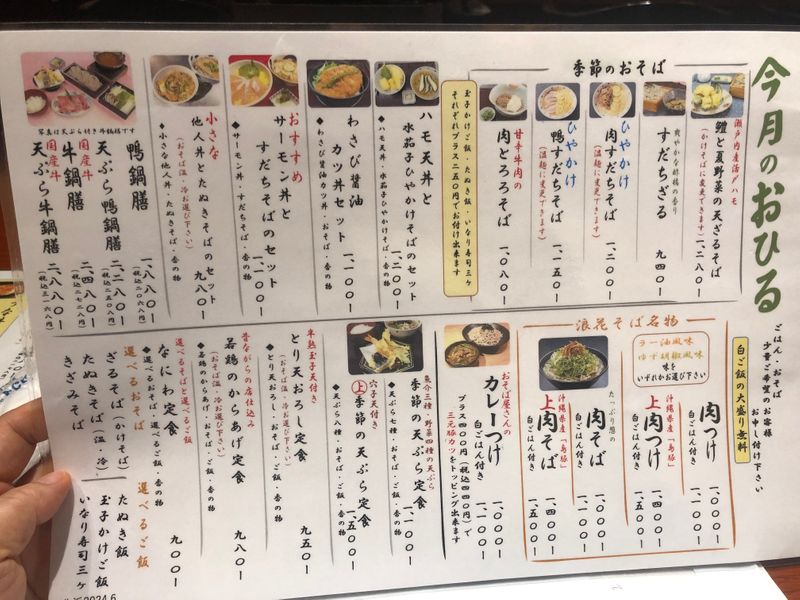 今月のおひる
ごはん・おそば
少量ご希望のお客様
お申し付け下さい
白ご飯の大盛り無料
季節のおそば
瀬戸内産活〆ハモ
鱧と夏野菜の天ざるそば
(かけそばに変更できます)
一、二〇〇ー
爽やかな酢橘の香り
すだちざる
九四〇ー
ひやかけ
肉すだちそば
(温麺に変更できます)
一、二〇〇ー
ひやかけ
鴨すだちそば
(温麺に変更できます)
一、一五〇ー
甘辛牛肉の
肉とろろそば
一、〇八〇ー
玉子かけご飯・たぬき飯・いなり寿司三ヶ
それぞれプラス二五〇円でお付け出来ます
ハモ天丼と
水茄子ひやかけそばのセット
一、二〇〇ー
◆ハモ天丼・水茄子ひやかけそば・香の物
わさび醤油
カツ丼セット
一、一〇〇ー
◆わさび醤油カツ丼・おそば・香の物
おすすめ
サーモン丼と
すだちそばのセット
一、一〇〇ー
◆サーモン丼・すだちそば・香の物
小さな
他人丼とたぬきそばのセット
(おそば温・冷お選び下さい)
九八〇ー
◆小さな他人丼・たぬきそば・香の物
写真は天ぷら付き牛鍋膳です
鴨鍋膳
一、八八〇ー
(税込二〇六八円)
天ぷら鴨鍋膳
二、二八〇ー
(税込二五〇八円)
国産牛
牛鍋膳
二、四八〇ー
(税込二七二八円)
国産牛
天ぷら牛鍋膳
二、八八〇ー
(税込三一六八円)
浪花そば名物
ラー油風味
ゆず胡椒風味
味を
いずれかお選び下さい
肉つけ
一、〇〇〇ー
白ごはん付き
一、一〇〇ー
沖縄県産「島豚」
上肉つけ
一、四〇〇ー
(白ごはん付き)
一、五〇〇ー
たっぷり葱の
肉そば
一、〇〇〇ー
(白ごはん付き)
一、一〇〇ー
沖縄県産「島豚」
上肉そば
一、四〇〇ー
(白ごはん付き)
一、五〇〇ー
おそば屋さんの
カレーつけ
一、〇〇〇ー
白ごはん付き
一、一〇〇ー
プラス四〇〇円(税込四四〇円)で
三元豚カツをトッピング出来ます
魚介三種・野菜四種の天ぷら
季節の天ぷら定食
一、一〇〇ー
◆天ぷら七種・おそば・ご飯・香の物
穴子天付き
上季節の天ぷら定食
一、五〇〇ー
◆天ぷら八種・おそば・ご飯・香の物
半熟玉子天付き
とり天おろし定食
(おそば温・冷お選び下さい)
九五〇ー
◆とり天おろし・おそば・ご飯・香の物
昔ながらの店仕込み
若鶏のからあげ定食
(おそば温・冷お選び下さい)
九八〇ー
◆若鶏のからあげ・おそば・ご飯・香の物
選べるそばと選べるご飯
なにわ定食
九〇〇ー
◆選べるおそば・選べるご飯・香の物
選べるおそば
ざるそば(かけそば)
たぬきそば(温・冷)
きざみそば
選べるご飯
たぬき飯
玉子かけご飯
いなり寿司三ヶ
2024.6